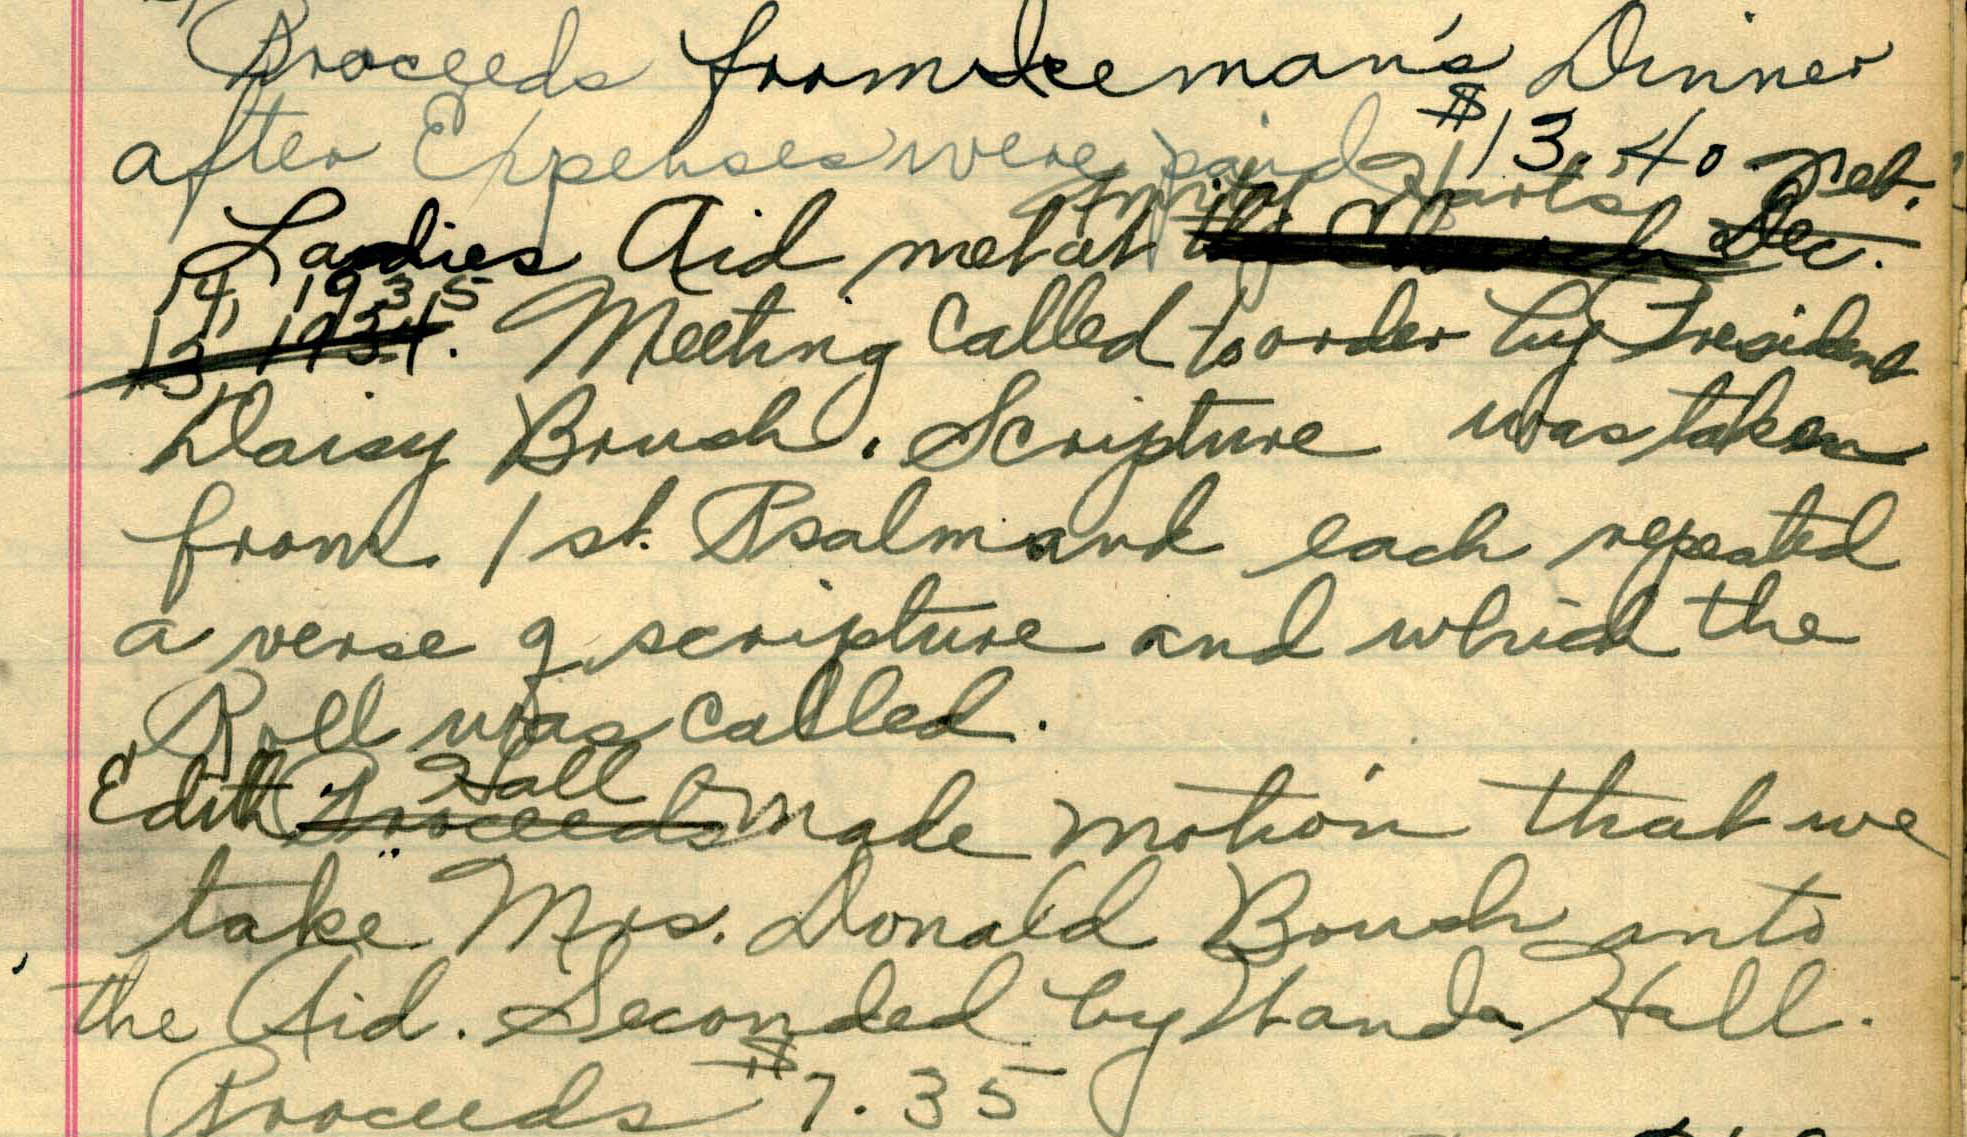 Proceeds from Iceman's Dinner
after Expenses were paid $13.40
Feb.
Ladies Aid met at the Church Dec.
14, 1935
13, 1934. Meeting Called to order by President
Daisy Brush. Scripture was taken
from 1st. Psalm and each repeated
a verse of scripture and which the
Roll was called.
Hall
Edith Proceeds made motion that we
take Mrs. Donald Brush into
the Aid. Seconded by Wanda Hall.
Proceeds $7.35